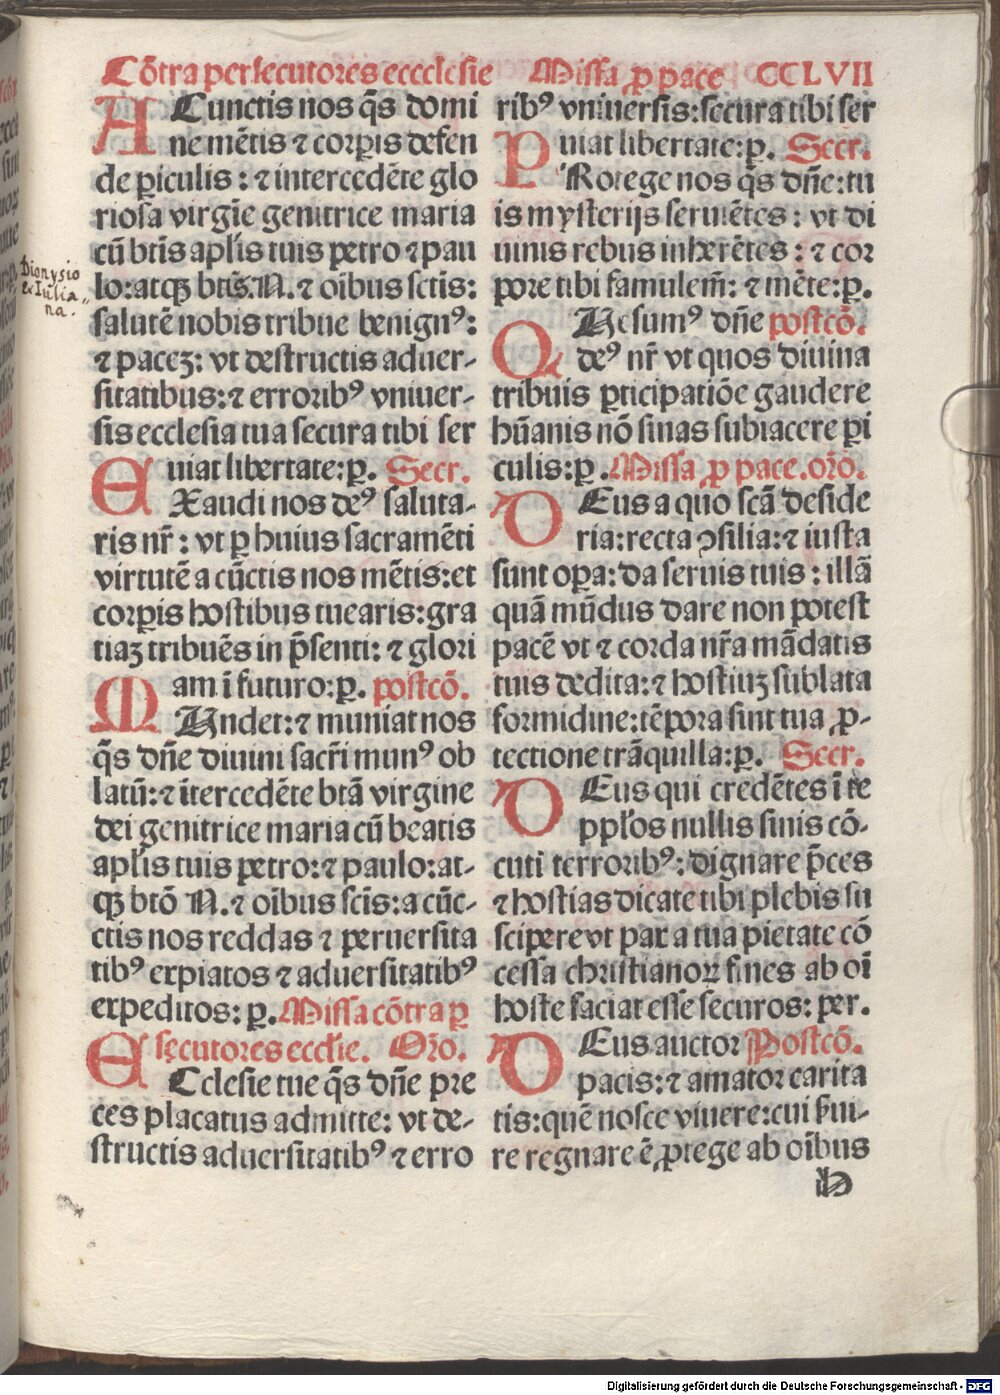 Cōtra persecutores eccclesie Missa ꝓ pace CCLVII
A Cunctis nos q̄s domi
ne mētis ⁊ corꝑis defen
de ꝑiculis : ⁊ intercedēte glo
riosa virgīe genitrice maria
cū btīs apl̄is tuis petro ⁊ pau
lo: atqꝫ btīs. N. ⁊ oībus sctis:
salutē nobis tribue benignꝰ:
⁊ paceꝫ: vt destructis aduer-
sitatibus: ⁊ erroribꝰ vniuer-
sis ecclesia tua secura tibi ser
uiat libertate: ꝑ. Secr.
EXaudi nos deꝰ saluta-
ris nr̄: vt ꝑ huius sacramēti
virtutē a cūctis nos mētis: et
corꝑis hostibus tuearis: gra
tiaꝫ tribuēs in p̄senti: ⁊ glori
am ī futuro: ꝑ. postcō.
MUndet: ⁊ muniat nos
q̄s dn̄e diuini sacr̄i munꝰ ob
latū: ⁊ ītercedēte btā virgine
dei genitrice maria cū beatis
apl̄is tuis petro: ⁊ paulo: at-
qꝫ btō N. ⁊ oībus scīs: a cūc-
ctis nos reddas ⁊ peruersita
tibꝰ expiatos ⁊ aduersitatibꝰ
expeditos: ꝑ. Missa cōtra ꝑ
secutores eccl̄ie. Oro.
ECclesie tue q̄s dn̄e pre
ces placatus admitte: vt de-
structis aduersitatibꝰ ⁊ erro
ribꝰ vniuersis: secura tibi ser
uiat libertate: ꝑ. Secr.
PRotege nos q̄s dn̄e: tu
is mysterijs seruiētes: vt di
uinis rebus inherētes: ⁊ cor
pore tibi famulem̄: ⁊ mēte: ꝑ.
QUesumꝰ dn̄e postcō.
deꝰ nr̄ vt quos diuina
tribuis ꝑticipatiōe gaudere
hūanis nō sinas subiacere ꝑi
culis: ꝑ. Missa ꝓ pace. oro.
DEus a quo scā deside
ria: recta ꝯsilia: ⁊ iusta
sunt oꝑa: da seruis tuis: illā
quā mūdus dare non potest
pacē vt ⁊ corda nr̄a mādatis
tuis dedita: ⁊ hostiuꝫ sublata
formidine: tēpora sint tua ꝓ-
tectione trāquilla: ꝑ. Secr.
DEus qui credētes ī te
ppl̄os nullis sinis cō-
cuti terroribꝰ: dignare p̄ces
⁊ hostias dicate tibi plebis su
scipere vt pax a tua pietate cō
cessa christianoꝝ fines ab oī
hoste faciat esse securos: per.
DEus auctor Postcō.
pacis: ⁊ amator carita
tis: quē nosce viuere: cui s̄ui-
re regnare ē ꝓtege ab oībus
h
Dionysio
& Iulia
na.
Digitalisierung gefördert durch die Deutsche Forschungsgemeinschaft - DFG